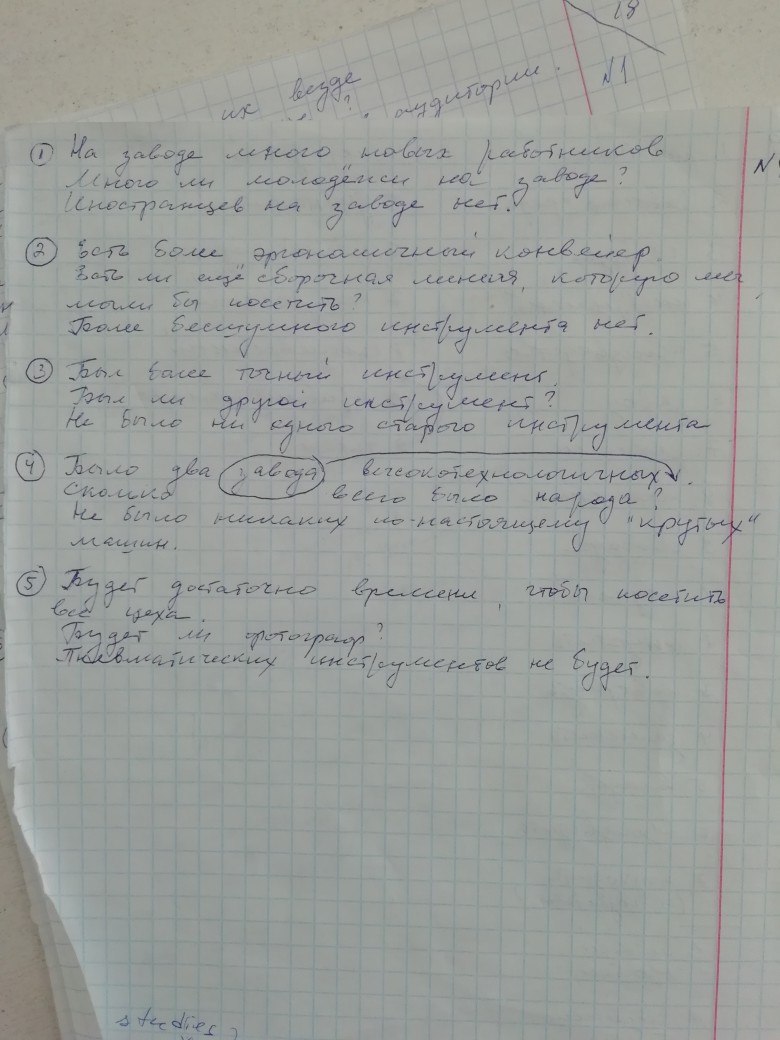 18
№1
их везде
? аудитории.
N
① На заводе много новых работников
Много ли молодёжи на заводе?
Иностранцев на заводе нет.
② Есть более эргономичный конвейер.
Есть ли ещё сборочная линия, которую мы
могли бы посетить?
Более бесшумного инструмента нет.
③ Был более точный инструмент.
Был ли другой инструмент?
Не было ни одного старого инструмента
④ Было два завода высокотехнологичных.
Сколько всего было народа?
Не было никаких по-настоящему "крутых"
машин.
⑤ Будет достаточно времени, чтобы посетить
все цеха.
Будет ли фотограф?
Пневматических инструментов не будет.
studies?